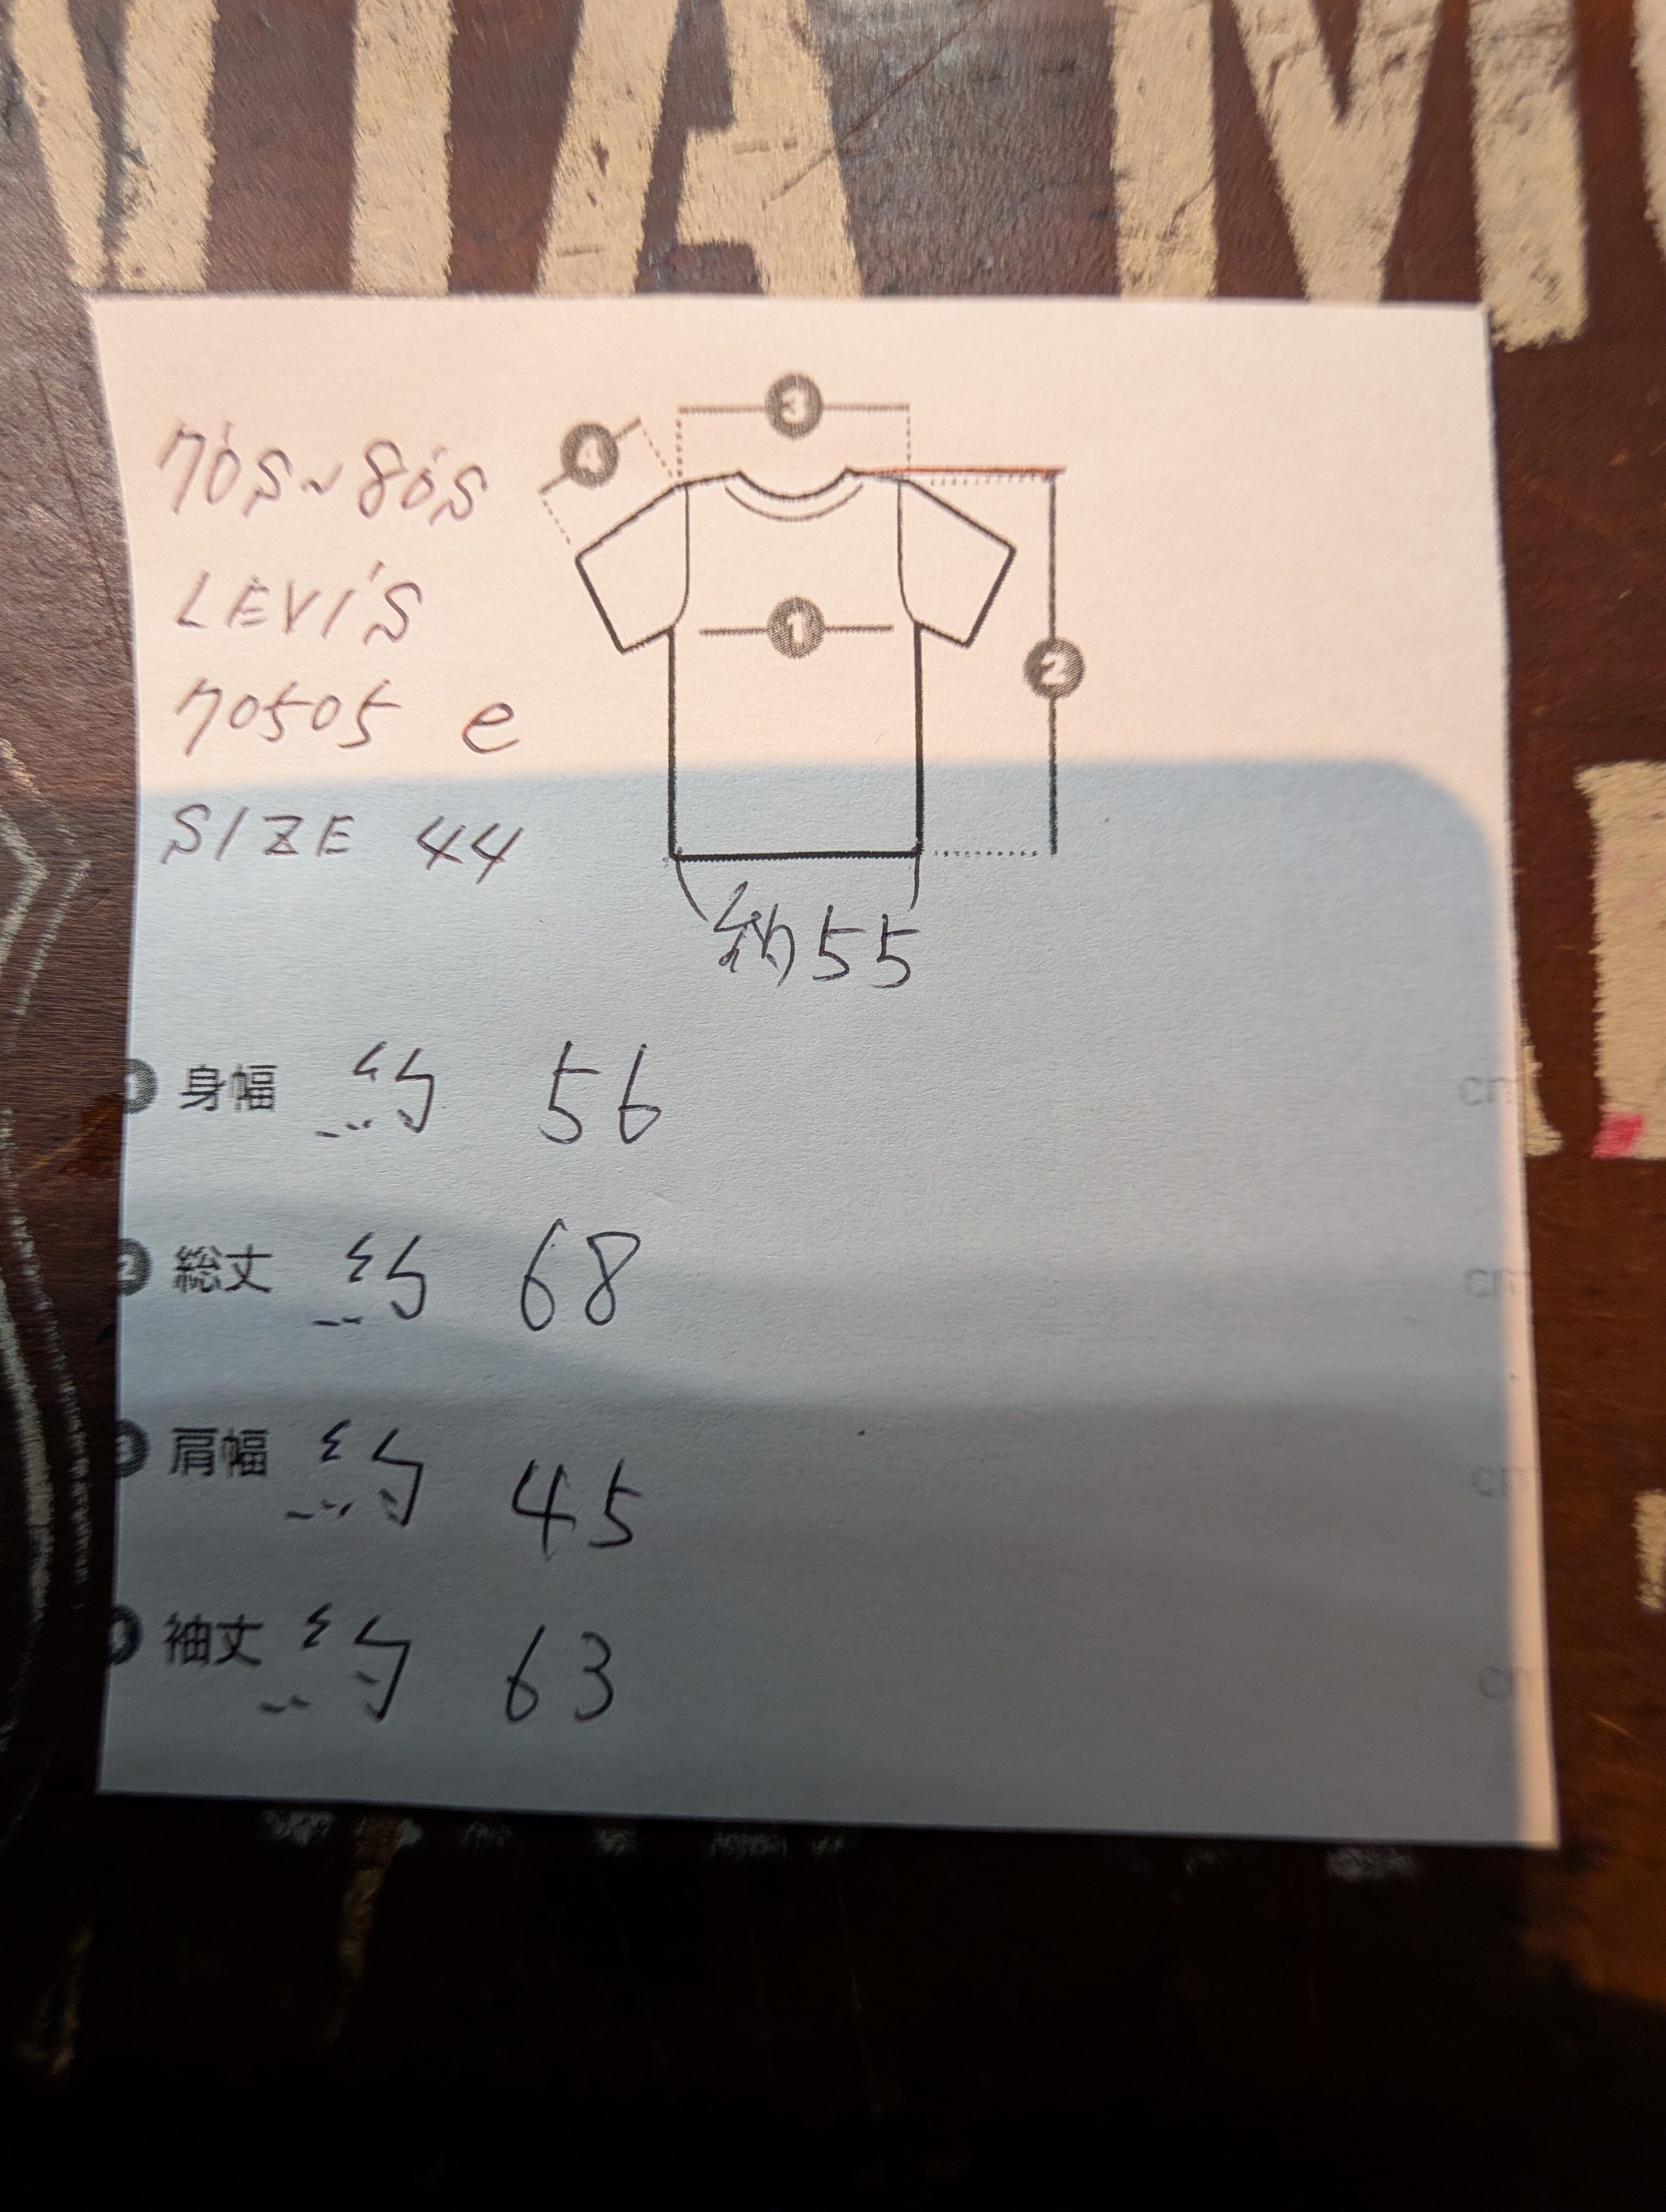 70's~80's
LEVI'S
70505 e
SIZE 44
3
4
1
2
約55
1 身幅 約 56 cm
2 総丈 約 68 cm
3 肩幅 約 45 cm
4 袖丈 約 63 cm